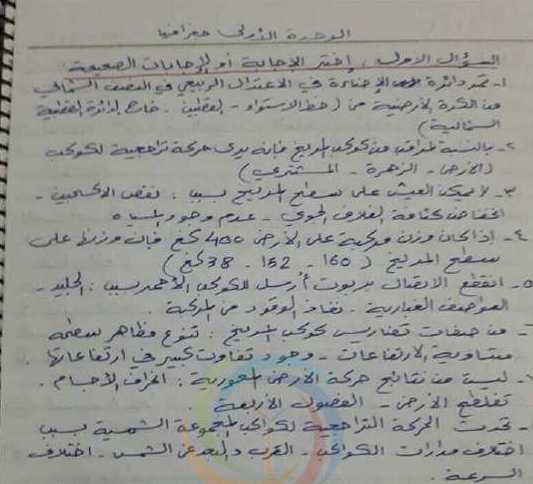 الوحدة الأولى جغرافيا
السؤال الأول : اختر الإجابة أو الإجابات الصحيحة:
١- تمتد دائرة الإضاءة في الاعتدال الربيعي في النصف الشمالي
من الكرة الأرضية من (خط الاستواء - القطبين - خارج الدائرة القطبية
الشمالية)
٢- بالنسبة لمراقب من كوكب المريخ فإنه يرى حركة تراجعية لكوكب
(الأرض - الزهرة - المشتري)
٣- لا يمكن العيش على سطح المريخ بسبب : نقص الأكسجين -
انخفاض كثافة الغلاف الجوي - عدم وجود المياه
٤- إذا كان وزن مركبة على الأرض 400 كغ فإن وزنها على
سطح المريخ (160 - 152 - 38 كغ)
٥- انقطع الاتصال بروبوت أرسل للكوكب الأحمر بسبب : الجليد -
العواصف الغبارية - نفاذ الوقود من المركبة .
٦- من صفات تضاريس كوكب المريخ : تنوع مظاهر سطحه
متساوية الارتفاعات - وجود تفاوت كبير في ارتفاعاتها .
٧- ليست من نتائج حركة الأرض المحورية : انحراف الأجسام .
تفلطح الأرض - الفصول الأربعة .
- تحدث الحركة التراجعية لكواكب المجموعة الشمسية بسبب
اختلاف مدارات الكواكب - القرب والبعد عن الشمس - اختلاف
السرعة .